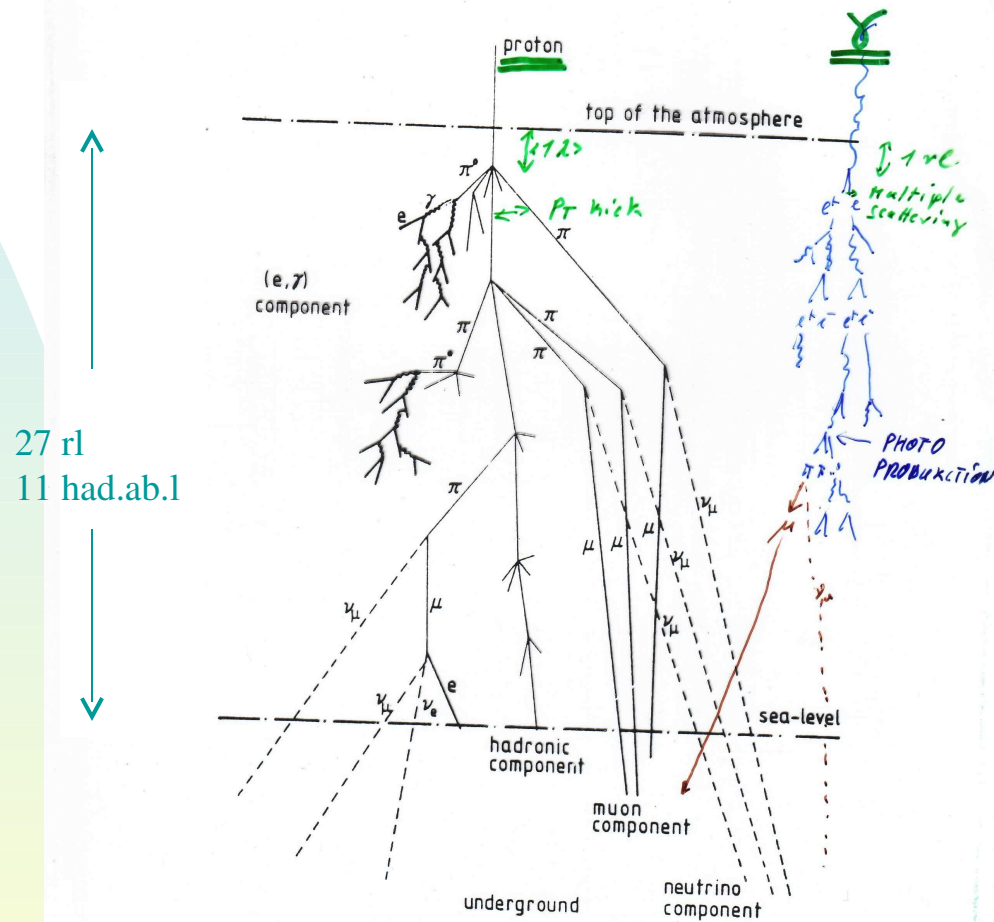 proton
γ
top of the atmosphere
1 rl
Multiple
scattering
π°
γ
e
PT kick
π
e⁺ e
(e,γ)
component
π
π
π
e⁺ e⁻ e⁺ e⁻
π°
27 rl
11 had.ab.l
PHOTO
PRODUKCTION
π
π π
ν_μ
μ
μ
μ
μ
ν_μ
ν_μ
μ
ν_μ
ν_μ
ν_μ
ν_e
e
sea-level
hadronic
component
muon
component
underground
neutrino
component